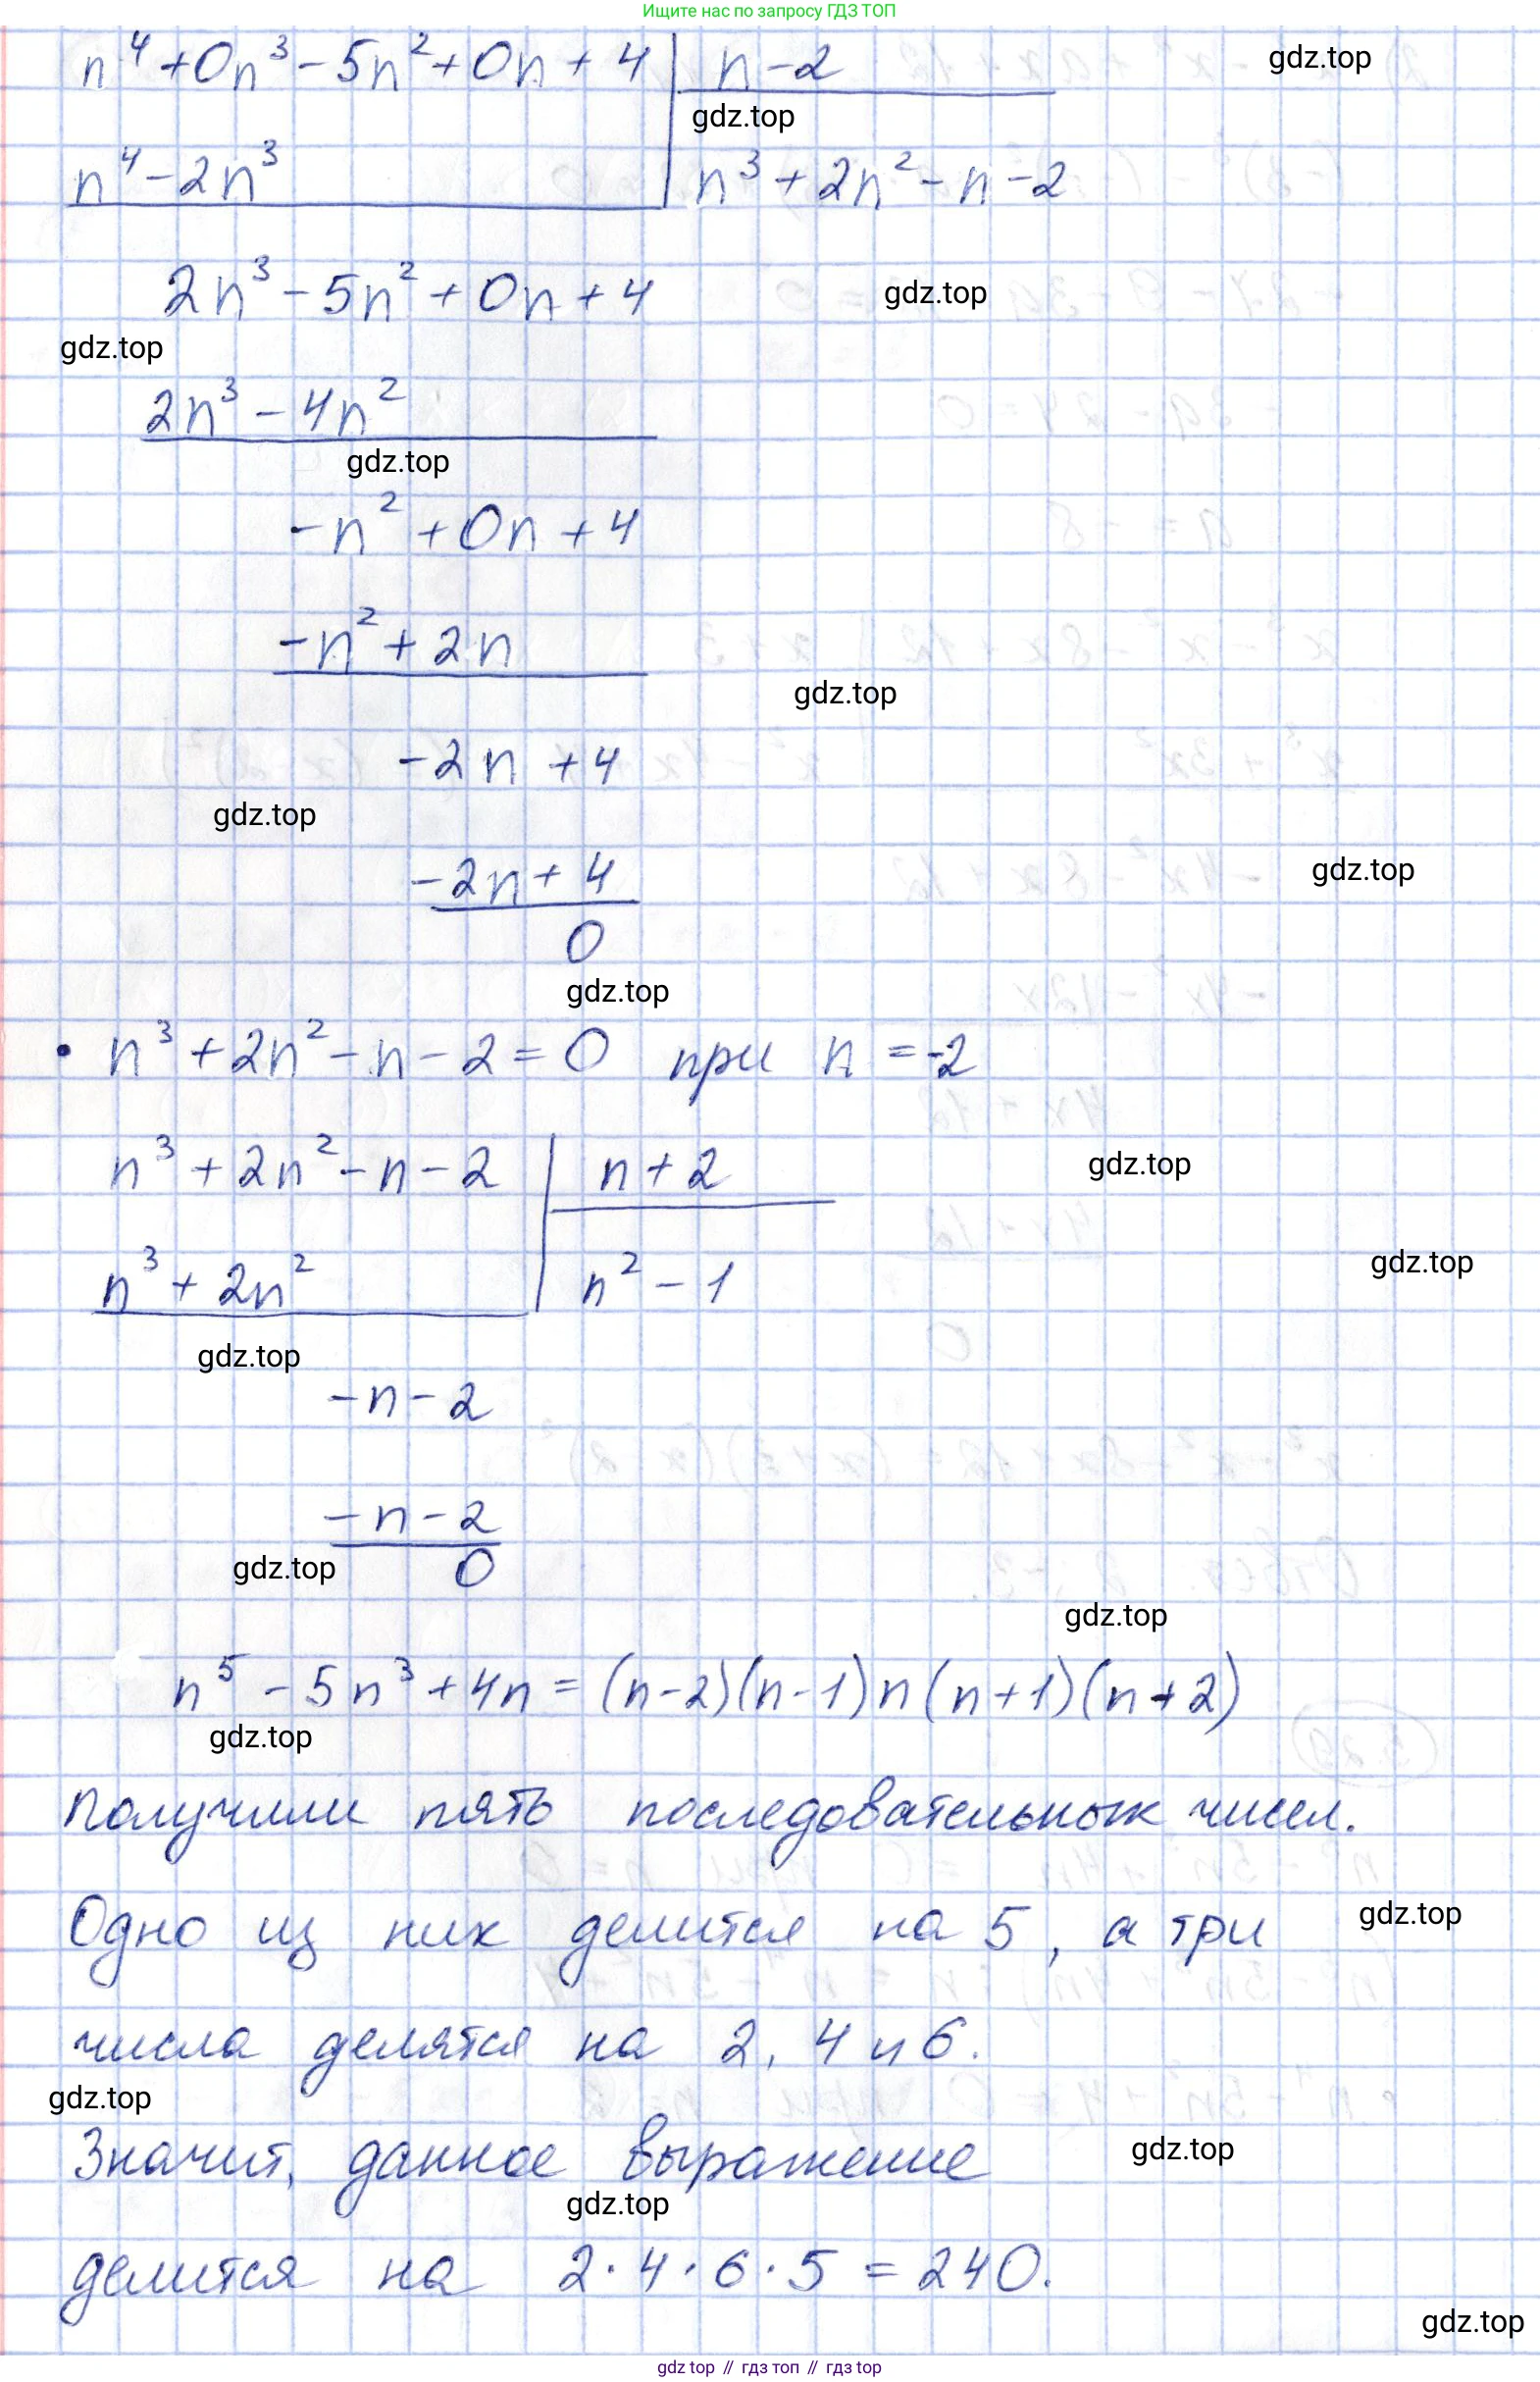 Ищите нас по запросу ГДЗ ТОП
n⁴+0n³-5n²+0n+4 | n-2
gdz.top
gdz.top
n⁴-2n³ | n³+2n²-n-2
2n³-5n²+0n+4
gdz.top
gdz.top
2n³-4n²
gdz.top
-n²+0n+4
-n²+2n
gdz.top
-2n+4
gdz.top
-2n+4
gdz.top
0
gdz.top
• n³+2n²-n-2=0 при n=-2
n³+2n²-n-2 | n+2
gdz.top
n³+2n² | n²-1
gdz.top
gdz.top
-n-2
-n-2
gdz.top
0
gdz.top
n⁵-5n³+4n=(n-2)(n-1)n(n+1)(n+2)
gdz.top
Получили пять последовательных чисел.
Одно из них делится на 5, а три
gdz.top
числа делятся на 2, 4 и 6.
gdz.top
Значит, данное выражение
gdz.top
gdz.top
делится на 2·4·6·5=240.
gdz.top
gdz top // гдз топ // гдз top